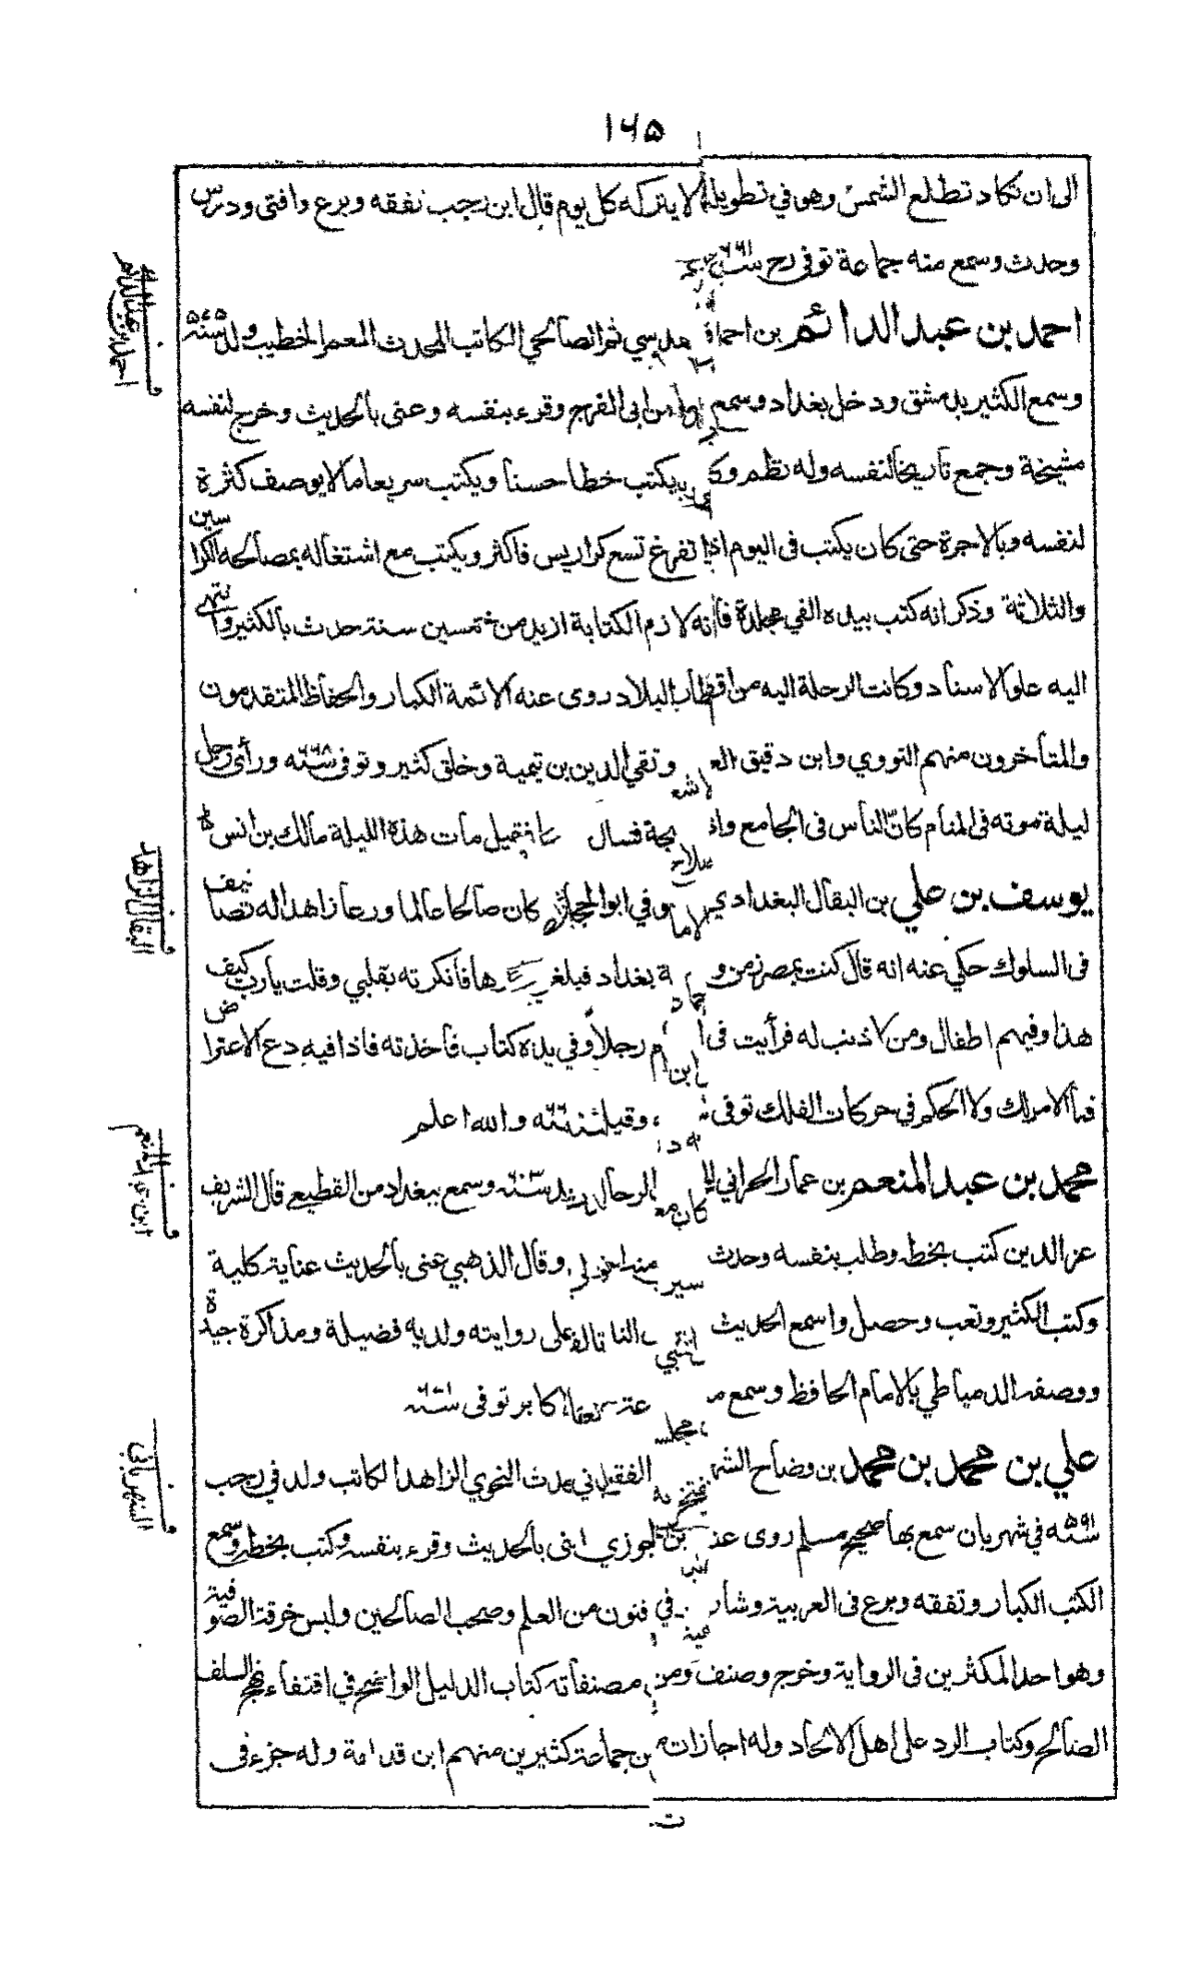 ١٦٥
الى ان تكاد تطلع الشمس وهو في تطويله لا يتركه كل يوم قال ابن رجب تفقه وبرع وافتى ودرس
وحدث وسمع منه جماعة توفى رح
احمد بن عبد الدائم بن احمد ثم الصالحي الكاتب المحدث المعمر الخطيب ولد سنة ٥٧٥
وسمع الكثير بدمشق ودخل بغداد وسمع بها من ابى الفرج وقرء بنفسه وعنى بالحديث وخرج لنفسه
مشيخة وجمع تاريخا لنفسه وله نظم يكتب خطا حسنا ويكتب سريعا ما لا يوصف كثرة
لنفسه وبالاجرة حتى كان يكتب فى اليوم اذا تفرغ تسع كراريس فاكثر ويكتب مع اشتغاله بمصالحه الكراسين
والثلاثة وذكر انه كتب بيده الفي مجلدة فانه لازم الكتابة ازيد من خمسين سنة حدث بالكثير وانتهى
اليه علو الاسناد وكانت الرحلة اليه من اقطار البلاد روى عنه الائمة الكبار والحفاظ المتقدمون
والمتأخرون منهم النووي وابن دقيق وتقي الدين بن تيمية وخلق كثير وتوفى سنة ٦٦٨ ورأى رجل
ليلة موته فى المنام كان الناس فى الجامع فسأل مات هذه الليلة مالك بن انس
يوسف بن علي بن البقال البغدادي ابو الحجاج كان صالحا عالما ورعا زاهدا له تصانيف
فى السلوك حكي عنه انه قال كنت بمصر زمن بغداد فبلغ فانكرته بقلبي وقلت يارب كيف
هذا وفيهم اطفال ومن لا ذنب له فرأيت فى رجلا وفي يده كتاب فاخذته فاذا فيه دع الاعتراض
فما الامر لك ولا الحكم في حركات الفلك توفى وقيل والله اعلم
محمد بن عبد المنعم بن عمار الحراني الرحال وسمع ببغداد من القطيعي قال الشريف
عز الدين كتب بخطه وطلب بنفسه وحدث وقال الذهبي عنى بالحديث عناية كلية
وكتب الكثير وتعب وحصل واسمع الحديث على روايته ولديه فضيلة ومذاكرة جيدة
ووصفه الدمياطي بالامام الحافظ وسمع الاكابر توفى
علي بن محمد بن محمد بن وضاح الفقيه النحوي الزاهد الكاتب ولد في رجب
سنة ٥٩١ في شهربان سمع بها صحيح مسلم روى بن الجوزي بالحديث وقرء بنفسه وكتب بخطه وسمع
الكتب الكبار وتفقه وبرع فى العربية في فنون من العلم وصحب الصالحين ولبس خرقة الصوفية
وهو احد المكثرين فى الرواية وخرج وصنف ومن مصنفاته كتاب الدليل الواضح في اقتفاء نهج السلف
الصالح وكتاب الرد على اهل الالحاد وله اجازات من جماعة كثيرين منهم ابن قدامة وله جزء فى
احمد بن عبد الدائم
البقال الزاهد
ابن عبد المنعم
الشهرباني